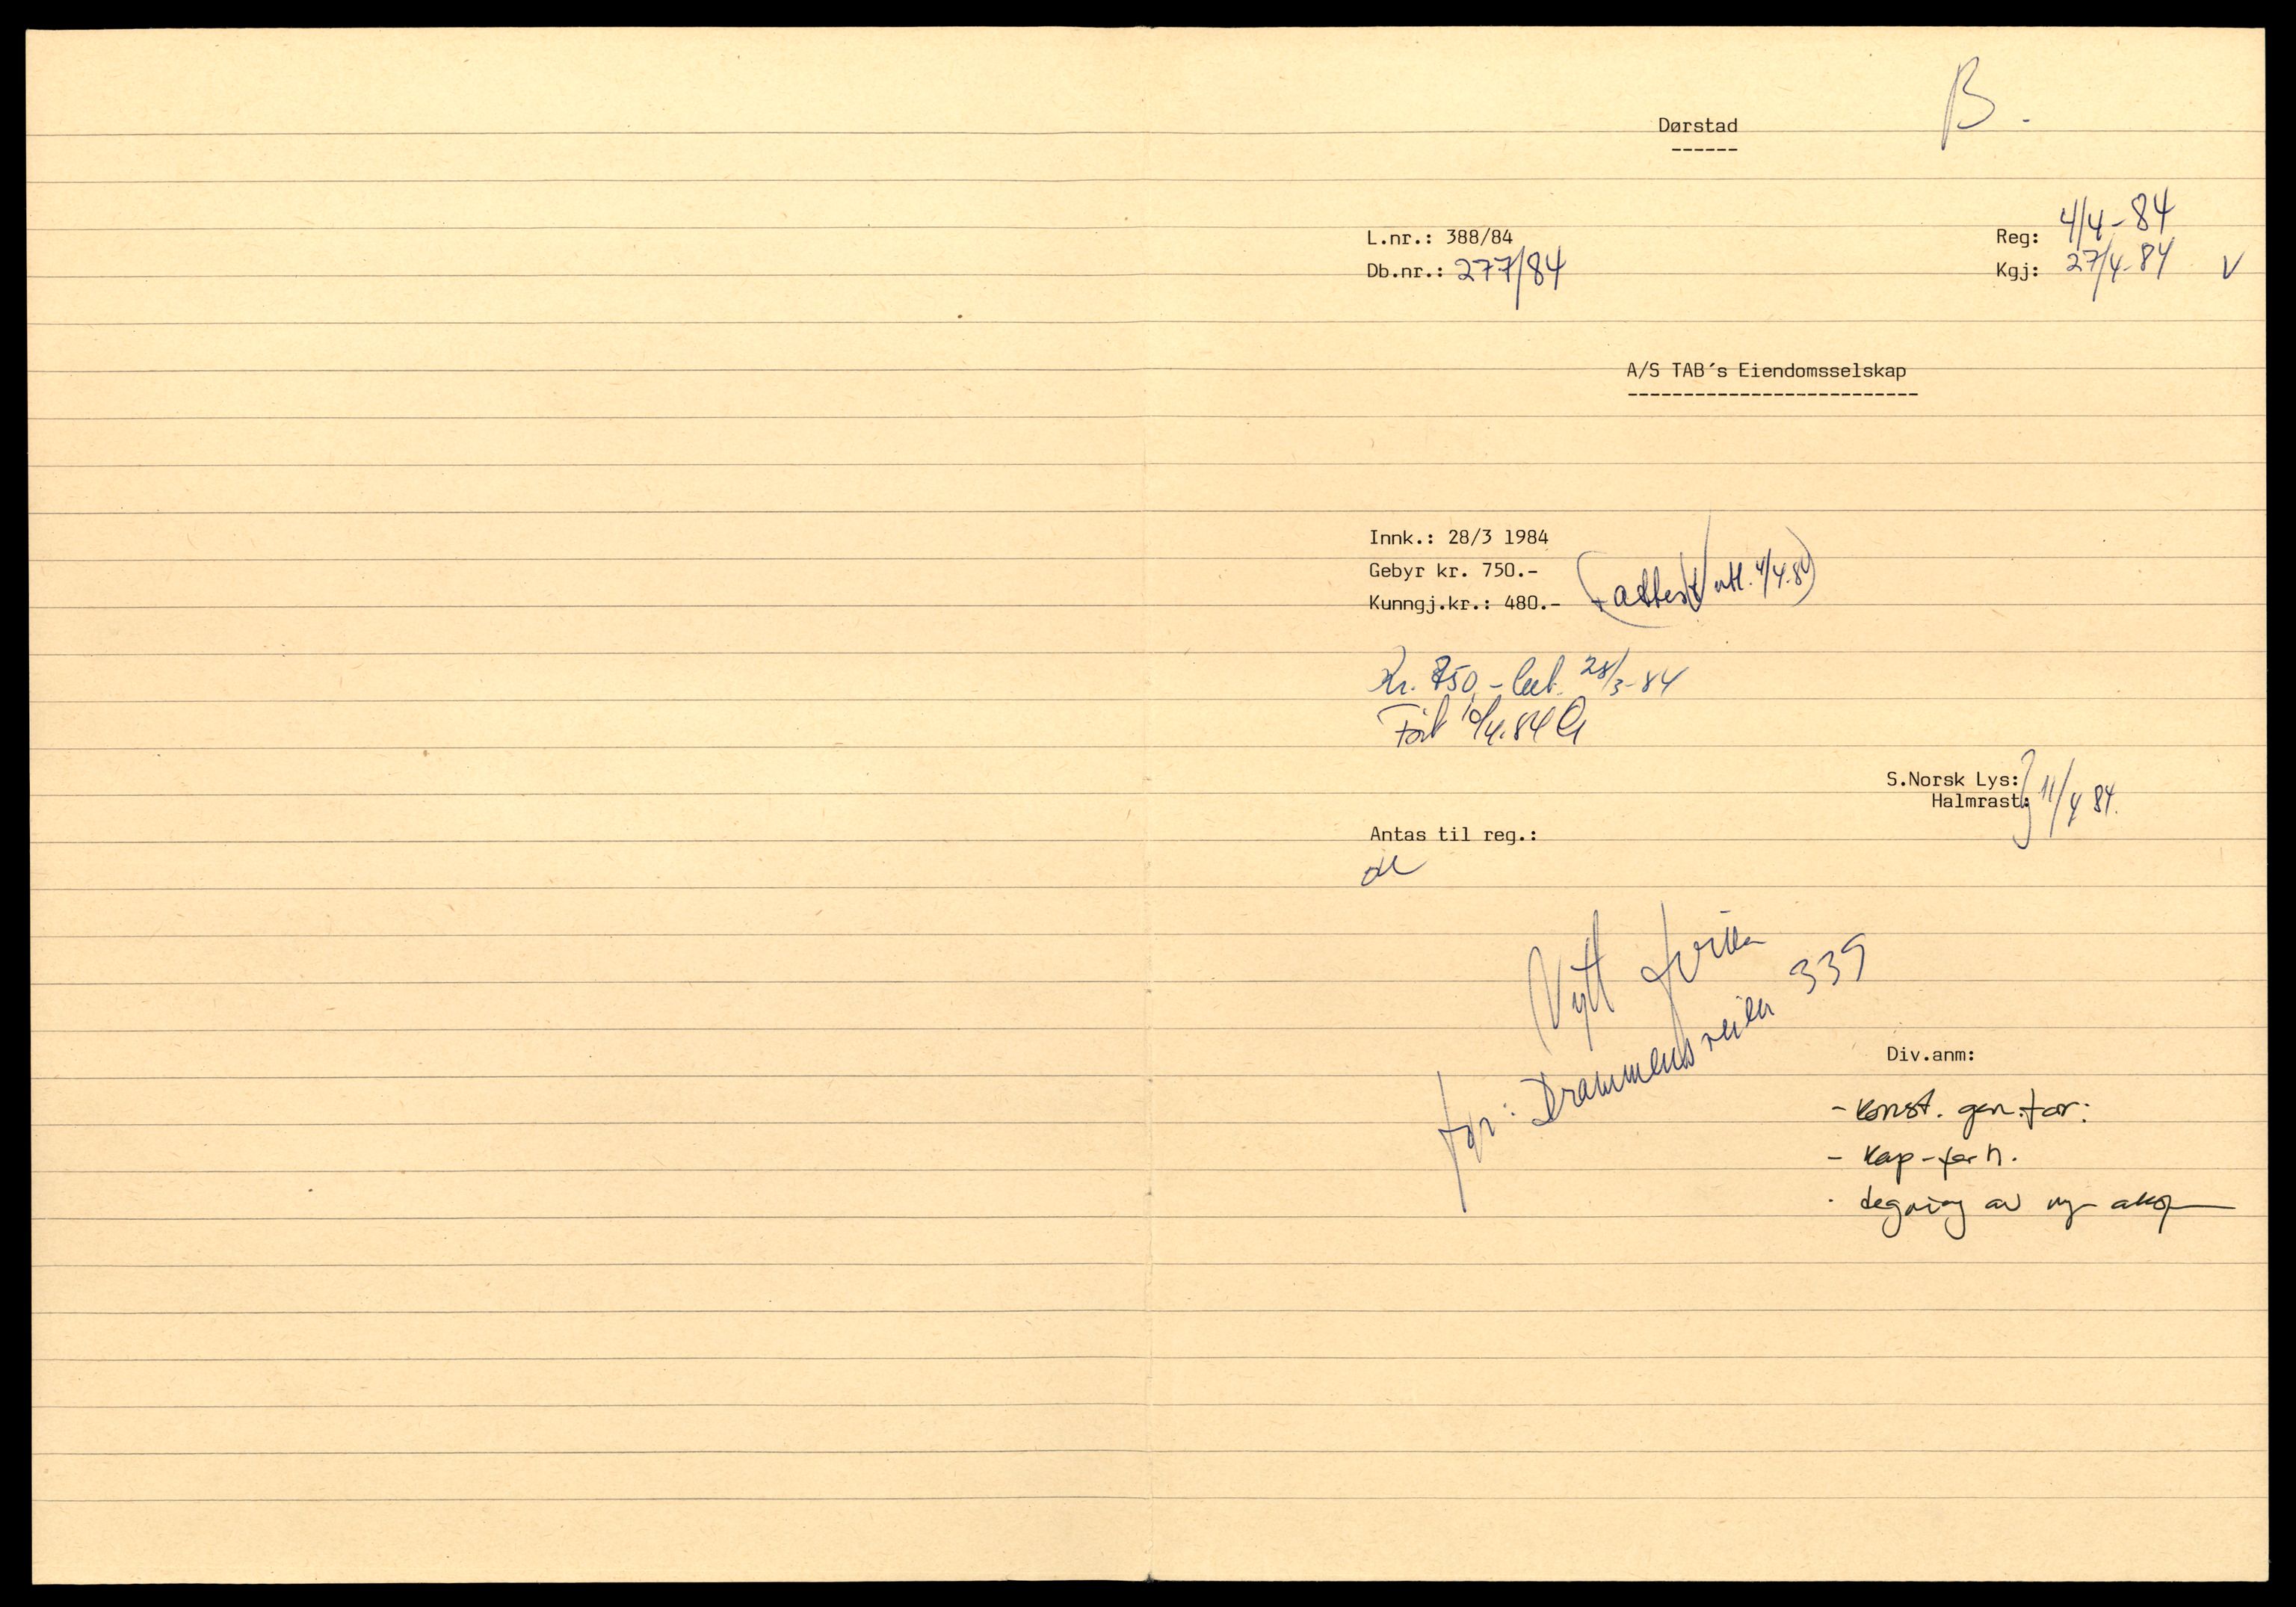 B.
Dørstad
L.nr.: 388/84
Reg: 4/4-84
Db.nr.: 277/84
Kgj: 27/4-84 V
A/S TAB´s Eiendomsselskap
Innk.: 28/3 1984
Gebyr kr. 750.-
Kunngj.kr.: 480.-
(+ attest utl. 4/4.84)
Kr. 750,- bet. 28/3-84
Ført 10/4.84
S.Norsk Lys:
Halmrast: 11/4 84.
Antas til reg.:
ok
Nytt
før: Drammensveien 339
Div.anm:
- konst. gen.for:
- kap-forh.
- tegning av ny